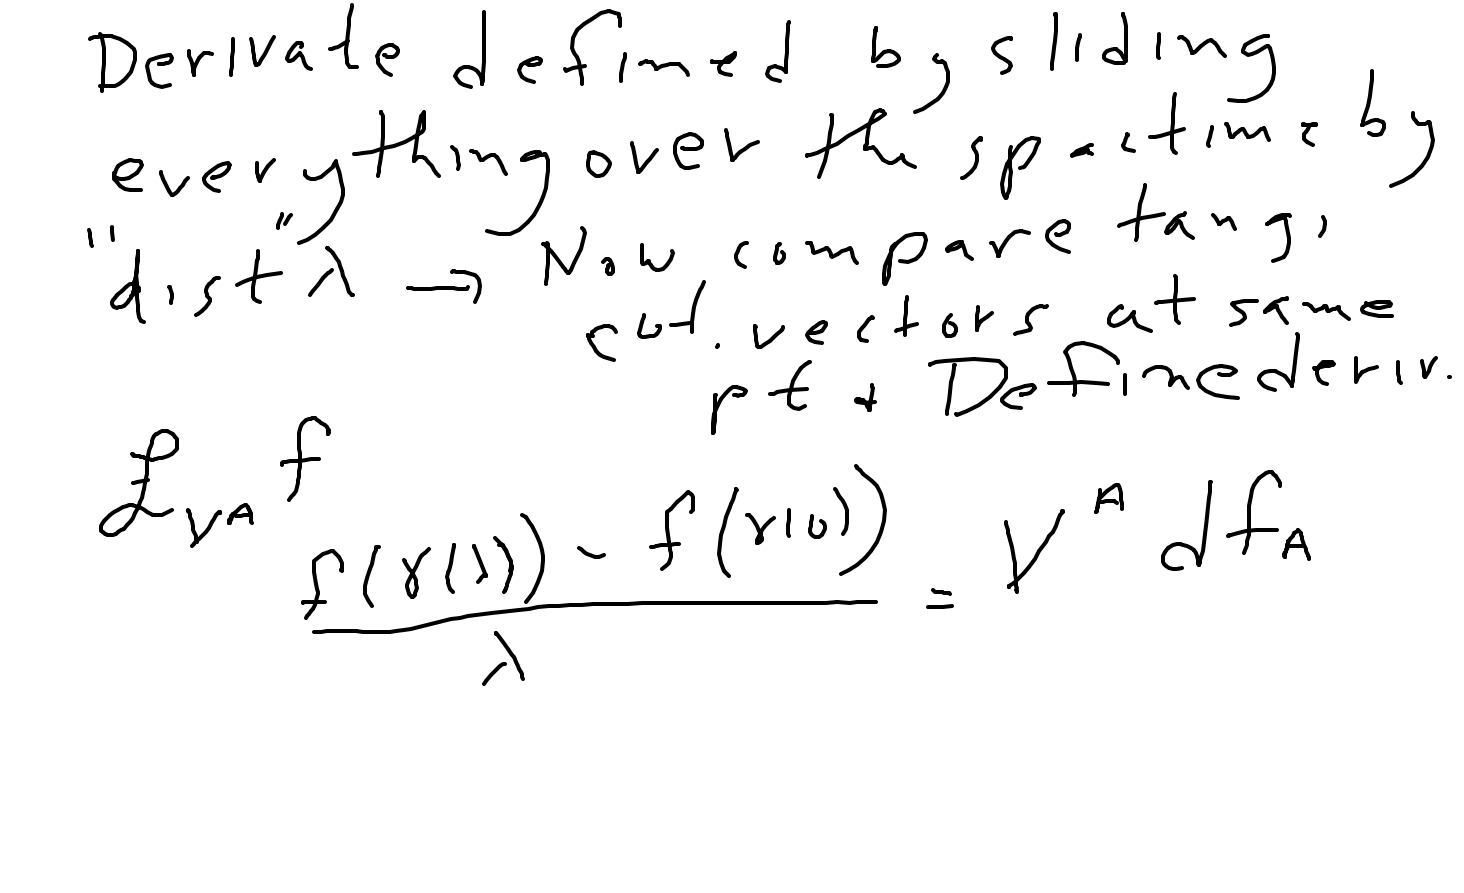 Derivate defined by sliding
everything over the spactime by
"dist" λ → Now compare tang,
cot. vectors at same
pt & Define deriv.
£_{V^A} f
f(γ(λ)) - f(γ(0)) / λ = V^A df_A